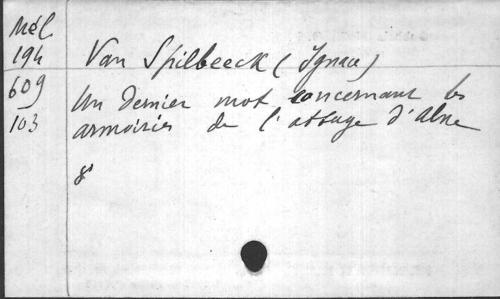 Mél.
194
Van Spilbeeck (Ignace)
609
Un dernier mot concernant les
103
armoiries de l'abbaye d'Alne
8°